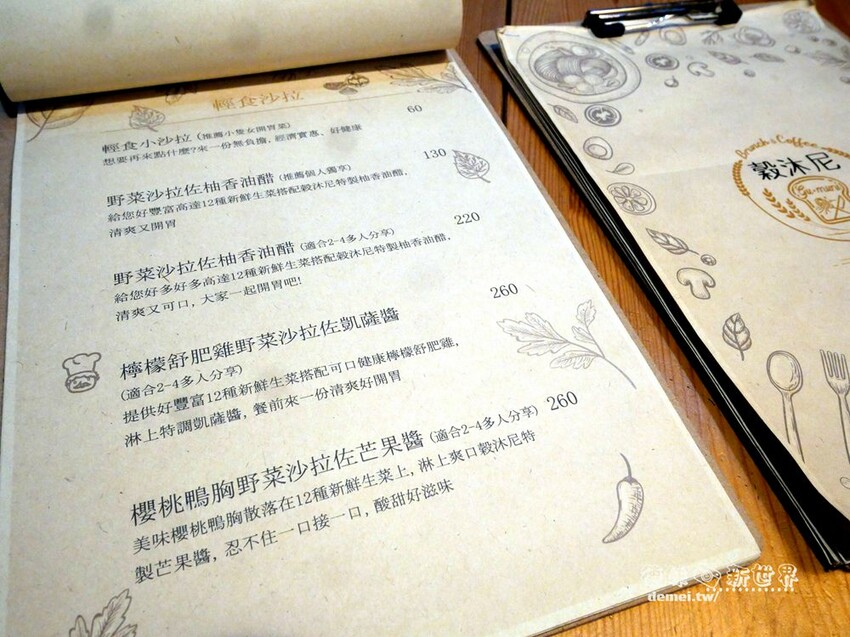 輕食沙拉
輕食小沙拉 (推薦小隻女開胃菜) 60
想要再來點什麼?來一份無負擔, 經濟實惠、好健康
野菜沙拉佐柚香油醋 (推薦個人獨享) 130
給您好豐富高達12種新鮮生菜搭配穀沐尼特製柚香油醋,
清爽又開胃
野菜沙拉佐柚香油醋 (適合2-4多人分享) 220
給您好多好多高達12種新鮮生菜搭配穀沐尼特製柚香油醋,
清爽又可口, 大家一起開胃吧!
檸檬舒肥雞野菜沙拉佐凱薩醬 260
(適合2-4多人分享)
提供好豐富12種新鮮生菜搭配可口健康檸檬舒肥雞,
淋上特調凱薩醬, 餐前來一份清爽好開胃
櫻桃鴨胸野菜沙拉佐芒果醬 (適合2-4多人分享) 260
美味櫻桃鴨胸散落在12種新鮮生菜上, 淋上爽口穀沐尼特
製芒果醬, 忍不住一口接一口, 酸甜好滋味
Brunch & Coffee
穀沐尼
新世界
demei.tw/